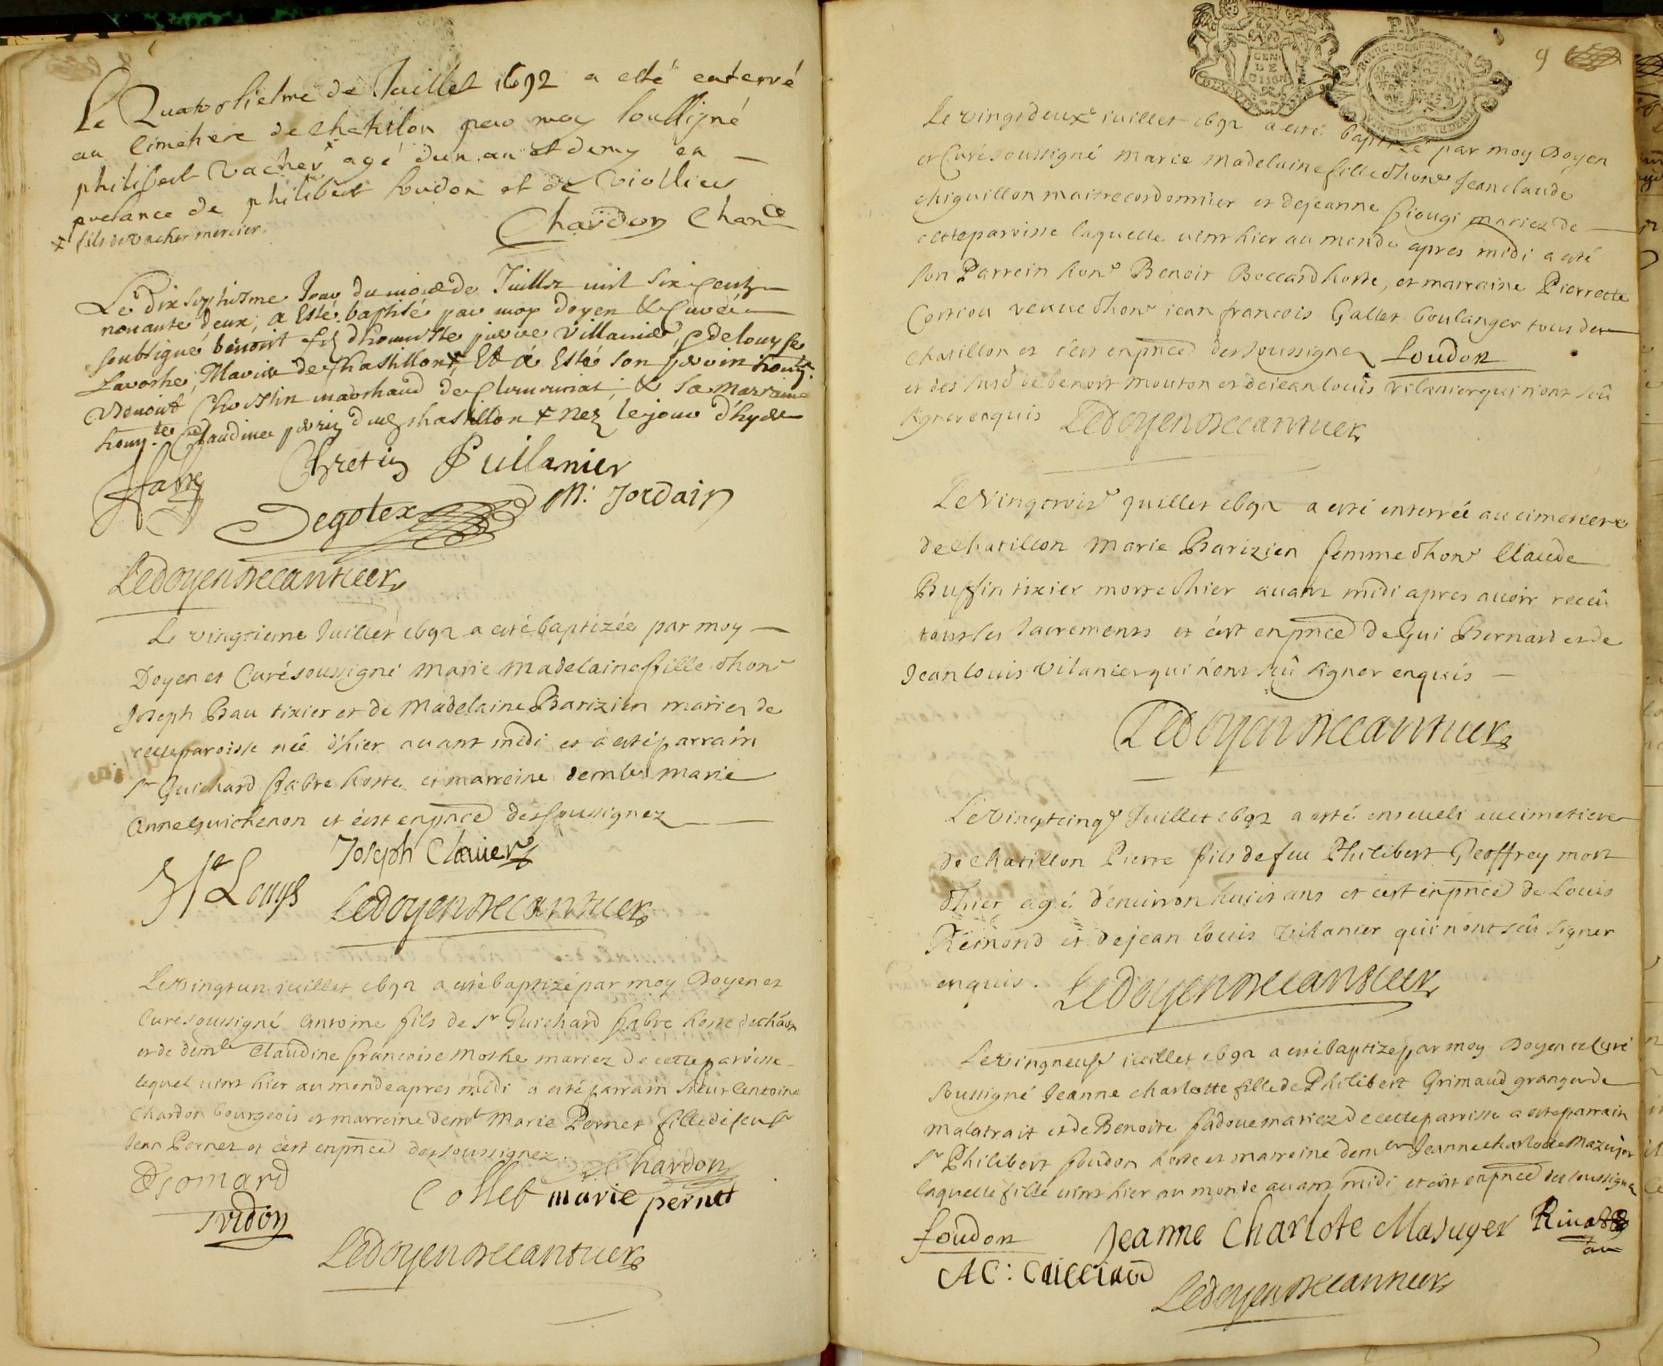 Le Quatorsiesme de Juillet 1692 a esté enterré
au Cimetiere de Chatillon par moy soussigné
philibert vacher + agé d'un an et demy en
presance de philibert foudon et de Viollier
+ fils de vacher mercier
Chardon
Le dix septiesme Jour du mois de Juillet mil six cents
nonante deux, a Esté baptisé par moy doyen & Curé
soubsigné benoist fils d'honneste pierre Villanier, & de louyse
Lavoshe, Mariez de chastillon + Et a Esté son parrin
Benoist marchand de & sa marraine
Claudine du chastillon + nez le jour d'hyer
favre Chretin P Villanier
Degotex M. Jordain
Ledoyen Decantuer
Le vingtieme Juillet 1692 a esté baptizée par moy
Doyen et Curé soussigné Marie Madelaine fille d'honr
Joseph Bau tixier et de Madelaine Barizien mariez de
cette paroisse née d'hier avant midi et a esté parrain
Sr Guichard fabre hoste et marreine demlle marie
Anne Guichenon et c'est en pnce des soussignez
Joseph Clavier
St Louys Ledoyen Decantuer
Le vingt un juillet 1692 a esté baptizé par moy Doyen et
Curé soussigné Antoine fils de Sr Guichard fabre hoste
et de demlle Claudine francoise Moshe mariez de cette paroisse
lequel vint hier au monde apres midi a esté parrain sieur Antoine
Chardon bourgeois et marreine demlle Marie Pernet fille de feu Sr
Jean Pernet et c'est en pnce des soussignez
Chardon
Collet marie pernet
Ledoyen Decantuer
9
Le vingt deuxe juillet 1692 a esté baptizée par moy Doyen
et Curé soussigné Marie Madelaine fille d'honr Jean claude
chiguillon maitre cordonnier et de jeanne mariez de
cette paroisse laquelle vint hier au monde apres midi a esté
son Parrein honr Benoit Boccard hoste, et marraine Pierrette
Corriou veuve d'honr jean francois Gallet boulanger tous de
Chatillon et c'est en pnce des soussignez foudon
et des susd de benoit mouton et de jean louis vilanier qui n'ont sçû
signer enquis Ledoyen Decantuer
Le Vingtroise juillet 1692 a esté enterrée au cimetiere
de Chatillon Marie Barizien femme d'honr Claude
Buffin tixier morte d'hier avant midi apres avoir receû
tous les sacrements et c'est en pnce de Gui Bernard et de
Jean louis Vilanier qui n'ont sçû signer enquis
Ledoyen Decantuer
Le Vingtcinqe Juillet 1692 a esté enseveli au cimetiere
de Chatillon Pierre fils de feu Philibert Geoffrey mort
d'hier agé d'environ huit ans et c'est en pnce de Louis
Remond et de jean louis vilanier qui n'ont sçû signer
enquis. Ledoyen Decantuer
Le vingneufe juillet 1692 a esté baptizé par moy Doyen et Curé
soussigné Jeanne charlotte fille de Philibert Grimaud granger de
malatrait et de Benoite fadoue mariez de cette parrisse a esté parrain
Sr Philibert foudon hoste et marreine demlle Jeanne charlotte Mazuyer
laquelle fille vint hier au monde avant midi et c'est en pnce des soussignez
foudon Jeanne Charlote Masuyer
Ledoyen Decantuer